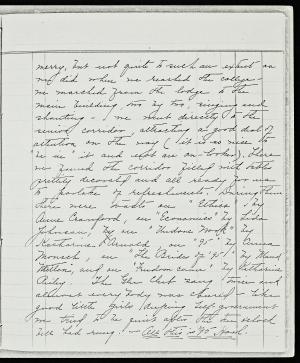 merry, but not quite to such an extent as
we did when we reached the college -
we marched from the lodge to the
main building, two by two, singing and
shouting - we went directly to the
senior corridor, attracting a good deal of
attention on the way (it is so nice to
be "it" and not an on-looker). There
we found the corridor filled with tables
prettily decorated and all ready for us
to partake of refreshments. During them
there were toasts on "Ethics" by
Anne Crawford, on "Economics" by Lida
Johnson, by on by
Katharine Arnold, on "'95" by Emma
on "The Brides of '95" by Maud
and on by Catharine
The Glee Club sang twice and
almost every body was cheered - Like
good little girls, self government
we tried to be quiet after the ten o'clock
bell had rung. - All this is '95